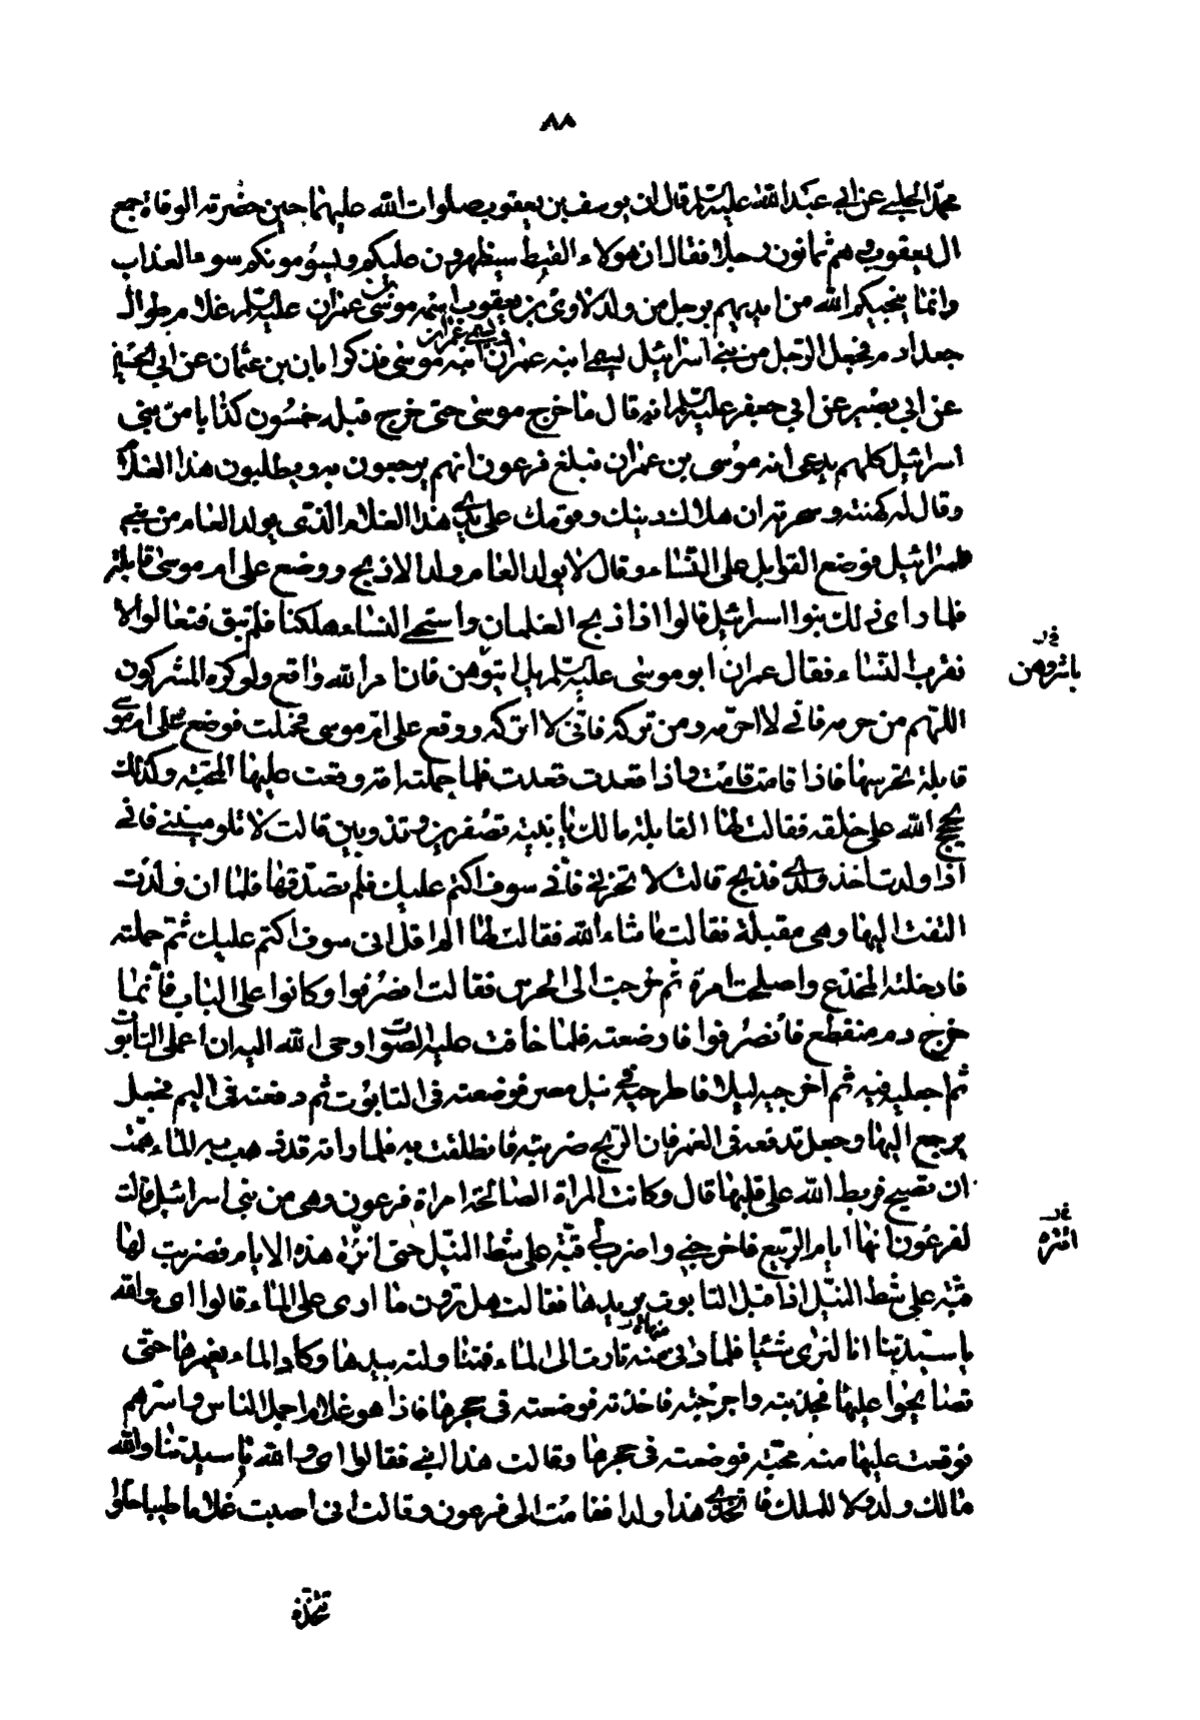 ٨٨
محمد الحلبي عن ابي عبد الله عليه السلام قال ان يوسف بن يعقوب صلوات الله عليهما حين حضرته الوفاة جمع
ال يعقوب وهم ثمانون رجلا فقال ان هولاء القبط سيظهرون عليكم ويسومونكم سوء العذاب
وانما ينجيكم الله من ايديهم برجل من ولد لاوى بن يعقوب اسمه موسى بن عمران عليه السلم غلام طوال
جعد ادم فجعل الرجل من بني اسرائيل يسمي ابنه عمران ويسمي عمران ابنه موسى فذكر ابان بن عثمان عن ابي الحصين
عن ابي بصير عن ابي جعفر عليه السلم انه قال ما خرج موسى حتى خرج قبله خمسون كذابا من بني
اسرائيل كلهم يدعى انه موسى بن عمران فبلغ فرعون انهم يرجعون به ويطلبون هذا الغلام
وقال له كهنته وسحرته ان هلاك دينك وقومك على يدي هذا الغلام الذي يولد العام من بني
اسرائيل فوضع القوابل على النساء وقال لا يولد العام ولد الا ذبح ووضع على ام موسى قابلة
فلما راى ذلك بنوا اسرائيل قالوا اذا ذبح الغلمان واستحي النساء هلكنا فلم نبق فتعالوا لا
نقرب النساء فقال عمران ابو موسى عليه السلم بل ايتوهن فان امر الله واقع ولو كره المشركون
باشروهن
اللهم من حرمه فاني لا احرمه ومن تركه فاني لا اتركه ووقع على ام موسى فحملت فوضع على ام موسى
قابلة تحرسها فاذا قامت قامت واذا قعدت قعدت فلما حملته امه وقعت عليها المحبة وكذلك
حجج الله على خلقه فقالت لها القابلة مالك يا بنية تصفرين وتذوبين قالت لا تلوميني فاني
اذا ولدت اخذ ولدي فذبح قالت لا تحزني فاني سوف اكتم عليك فلم تصدقها فلما ان ولدت
التفت اليها وهي مقبلة فقالت ما شاء الله فقالت لها الم اقل اني سوف اكتم عليك ثم حملته
فادخلته المخدع واصلحت امره ثم خرجت الى الحرس فقالت انصرفوا وكانوا على الباب فانما
خرج دم منقطع فانصرفوا فارضعته فلما خافت عليه الصوت اوحى الله اليها ان اعملي التابوت
ثم اجعليه فيه ثم اخرجيه ليلا فاطرحيه في نيل مصر فوضعته في التابوت ثم دفعته في اليم فجعل
يرجع اليها وجعل تدفعه في الغمر فان الريح ضربته فانطلقت به فلما راته قد ذهب به الماء همت
ان تصيح فربط الله على قلبها قال وكانت المراة الصالحة امراة فرعون وهي من بني اسرائيل قالت
لفرعون انها ايام الربيع فاخرجني واضرب لي قبة على شط النيل حتى اتنزه هذه الايام فضربت لها
انتزه
قبة على شط النيل اذا قبل التابوت يريدها فقالت هل ترون ما ارى على الماء قالوا اي والله
يا سيدتنا انا لنرى شيئا فلما دنى منه ثارت الى الماء فتناولته بيدها وكاد الماء يغمرها حتى
تصايحوا عليها فجذبته واخرجته فاخذته فوضعته في حجرها فاذا هو غلام اجمل الناس واسرهم
فوقعت عليها منه محبة فوضعته في حجرها وقالت هذا ابني فقالوا اي والله يا سيدتنا والله
مالك ولد ولا للملك فاتخذي هذا ولدا فقامت الى فرعون وقالت اني اصبت غلاما طيبا حلوا
تتخذه